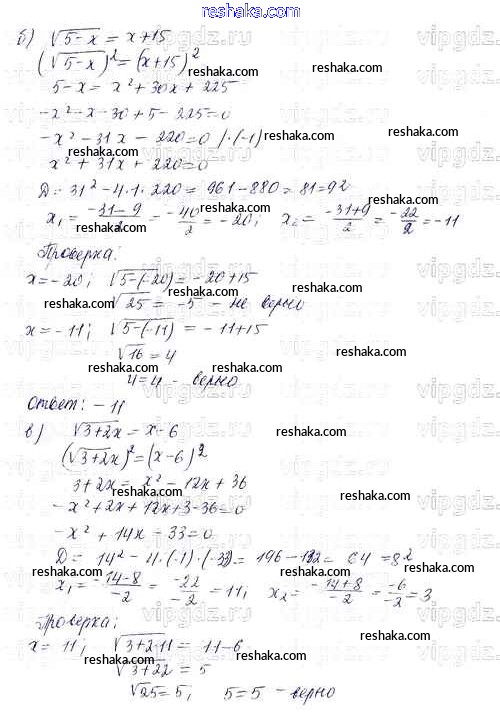 www.reshaka.com
б) √5-x = x+15
(√5-x)² = (x+15)²
5-x = x² + 30x + 225
-x² - x - 30 + 5 - 225 = 0
-x² - 31x - 220 = 0 /·(-1)
x² + 31x + 220 = 0
D = 31² - 4·1·220 = 961 - 880 = 81 = 9²
x₁ = (-31-9)/2 = -40/2 = -20; x₂ = (-31+9)/2 = -22/2 = -11
Проверка:
x = -20; √5-(-20) = -20+15
√25 = -5 - не верно
x = -11; √5-(-11) = -11+15
√16 = 4
4 = 4 - верно
Ответ: -11
в) √3+2x = x-6
(√3+2x)² = (x-6)²
3+2x = x² - 12x + 36
-x² + 2x + 12x + 3 - 36 = 0
-x² + 14x - 33 = 0
D = 14² - 4·(-1)·(-33) = 196 - 132 = 64 = 8²
x₁ = (-14-8)/-2 = -22/-2 = 11; x₂ = (-14+8)/-2 = -6/-2 = 3
Проверка:
x = 11; √3+2·11 = 11-6
√3+22 = 5
√25 = 5; 5 = 5 - верно
reshaka.com
vipgdz.com